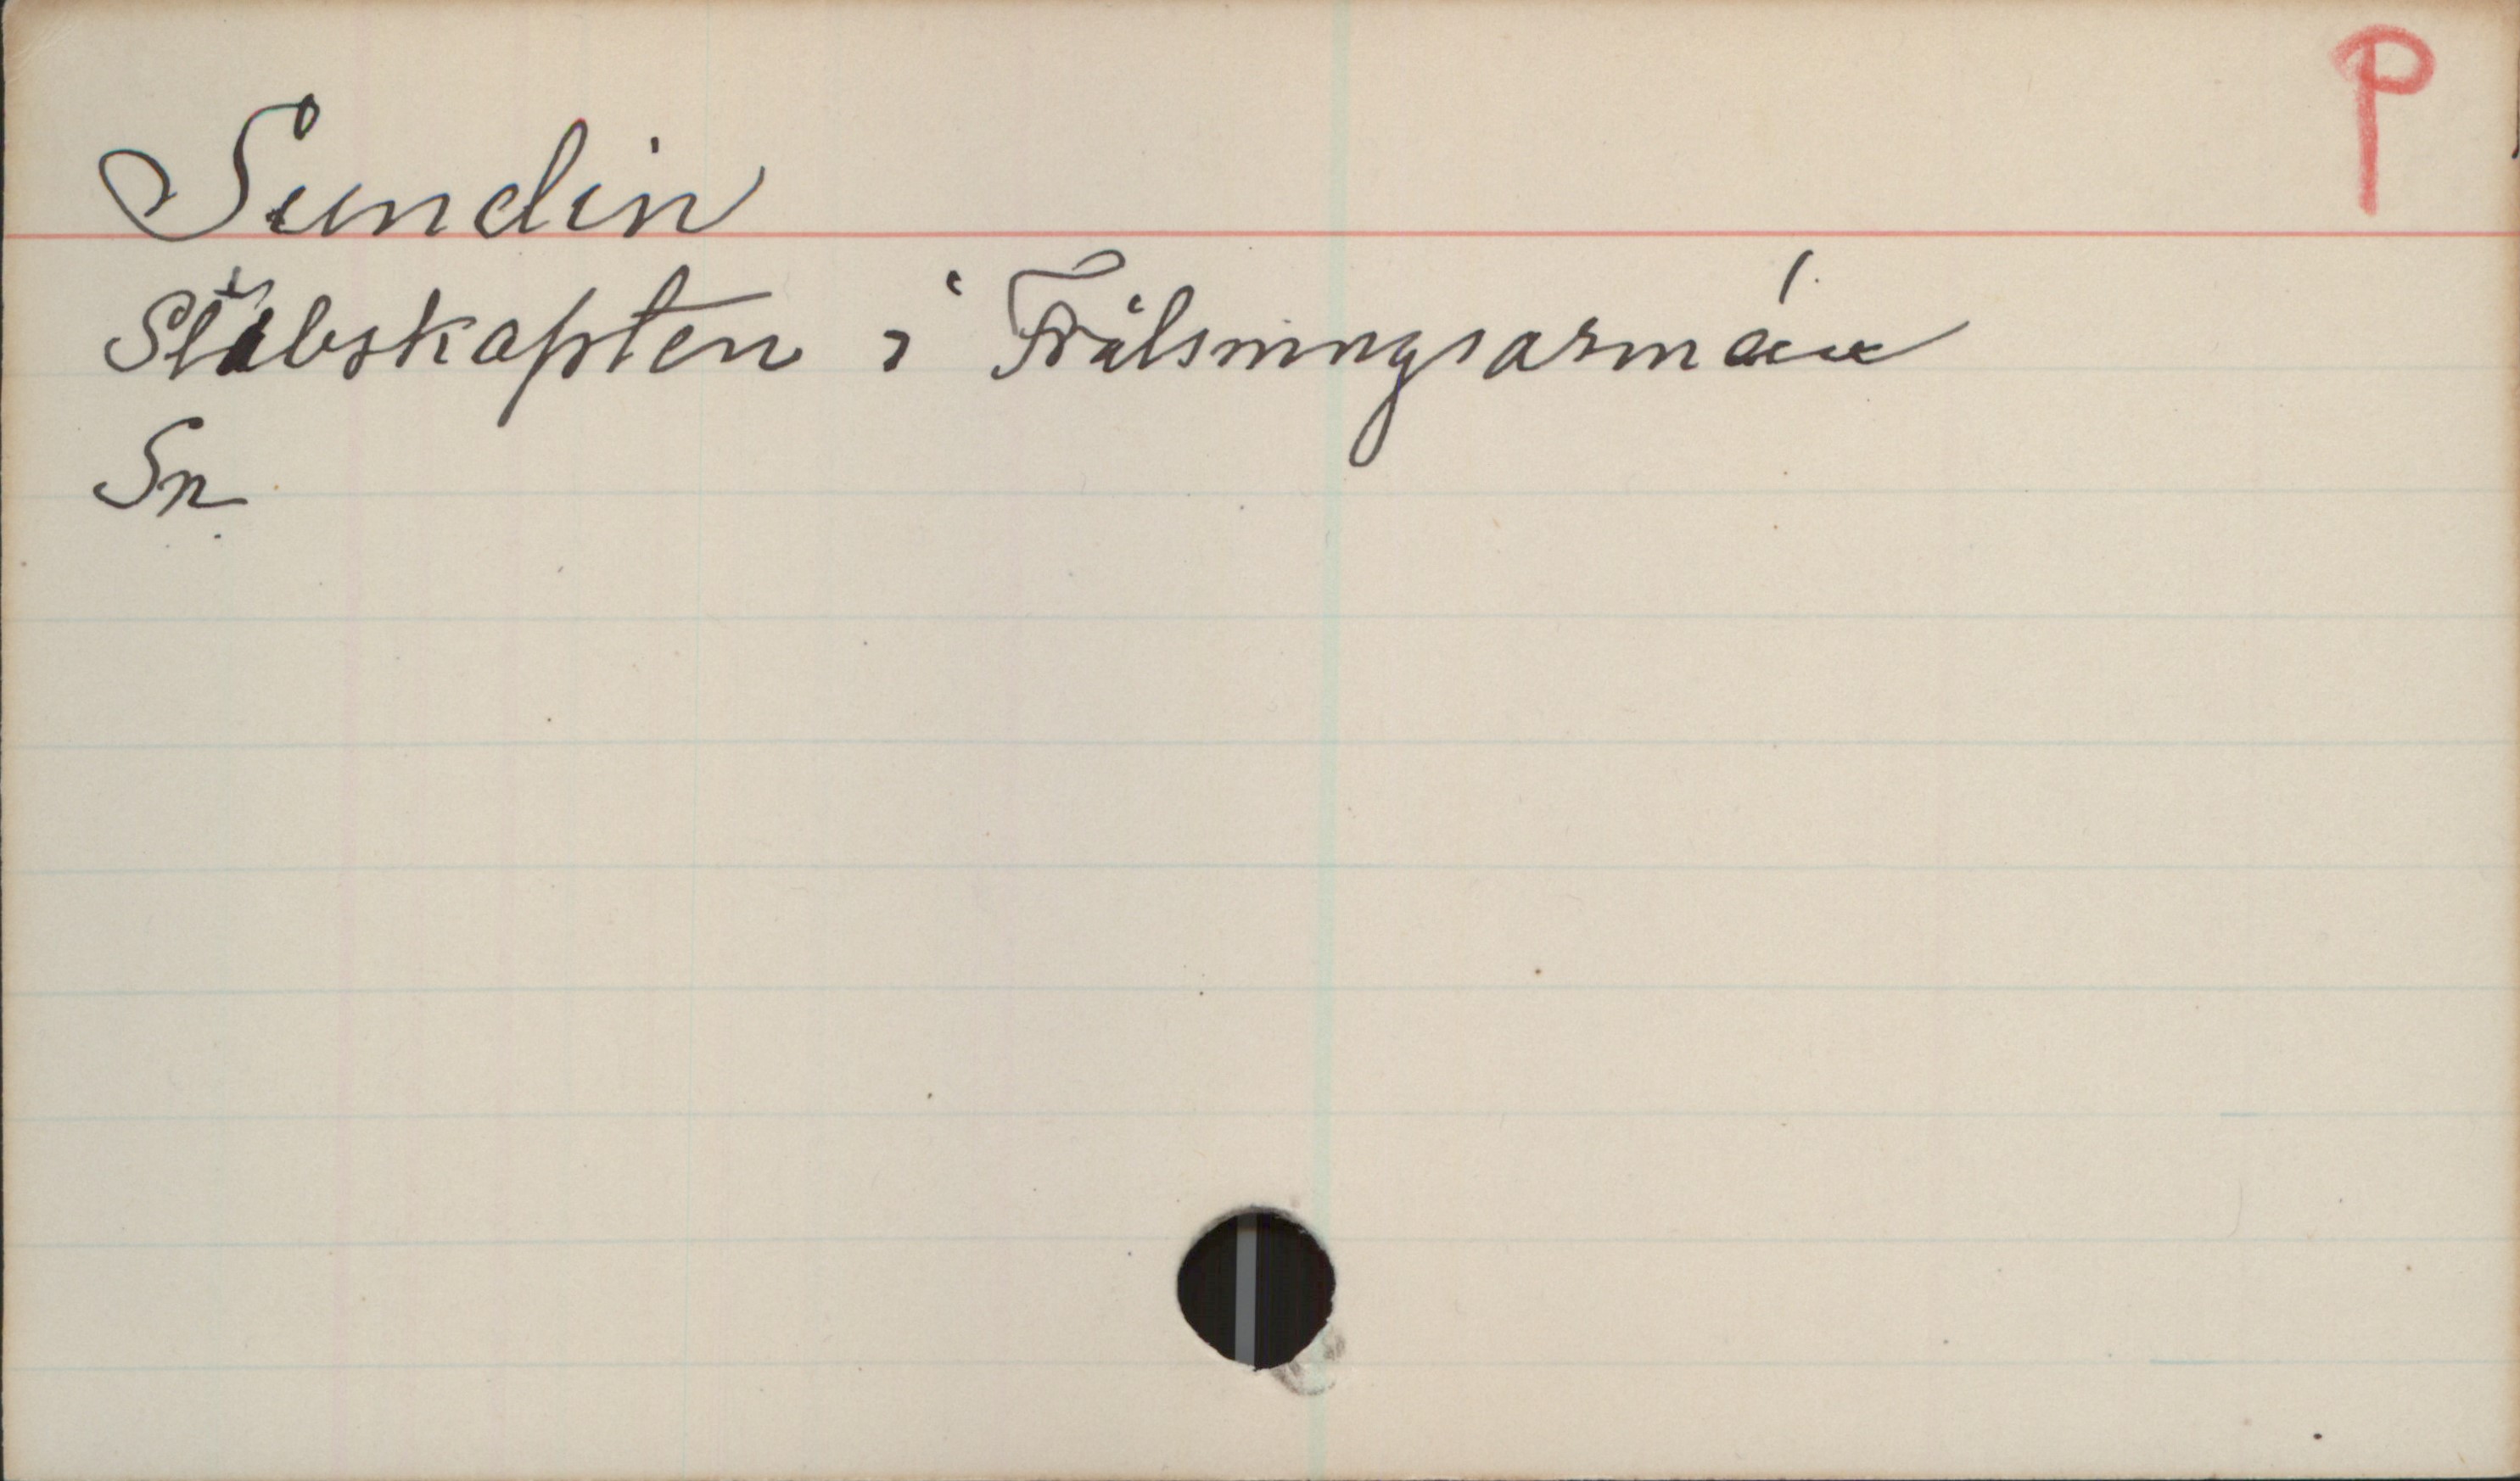 P
Sundin
Stabskapten i Frälsningsarmén
Sn